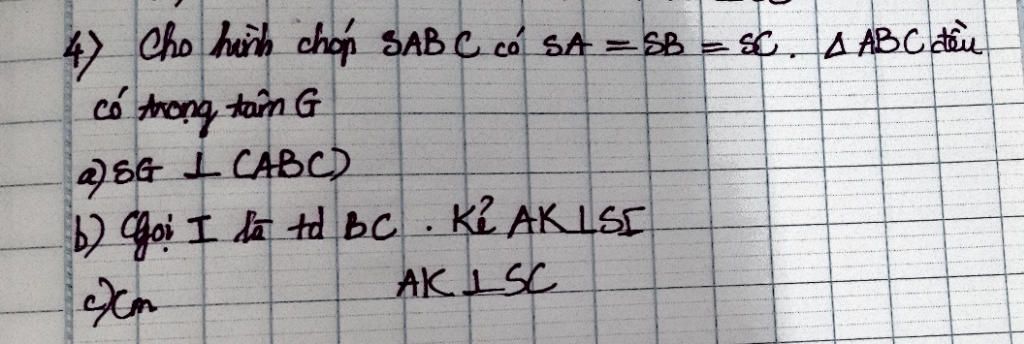 4) Cho hình chóp SABC có SA = SB = SC. Δ ABC đều
có trọng tâm G
a) SG ⊥ (ABC)
b) Gọi I là td BC. Kẻ AK⊥SI
c) Cm AK ⊥ SC